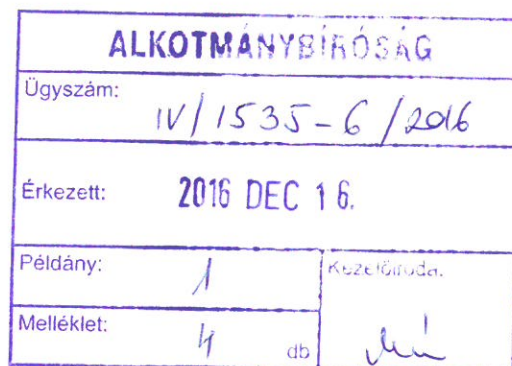 ALKOTMÁNYBÍRÓSÁG
Ügyszám:
IV/1535-6/2016
Érkezett: 2016 DEC 16.
Példány: 1 Kezelőiroda:
Melléklet: 4 db